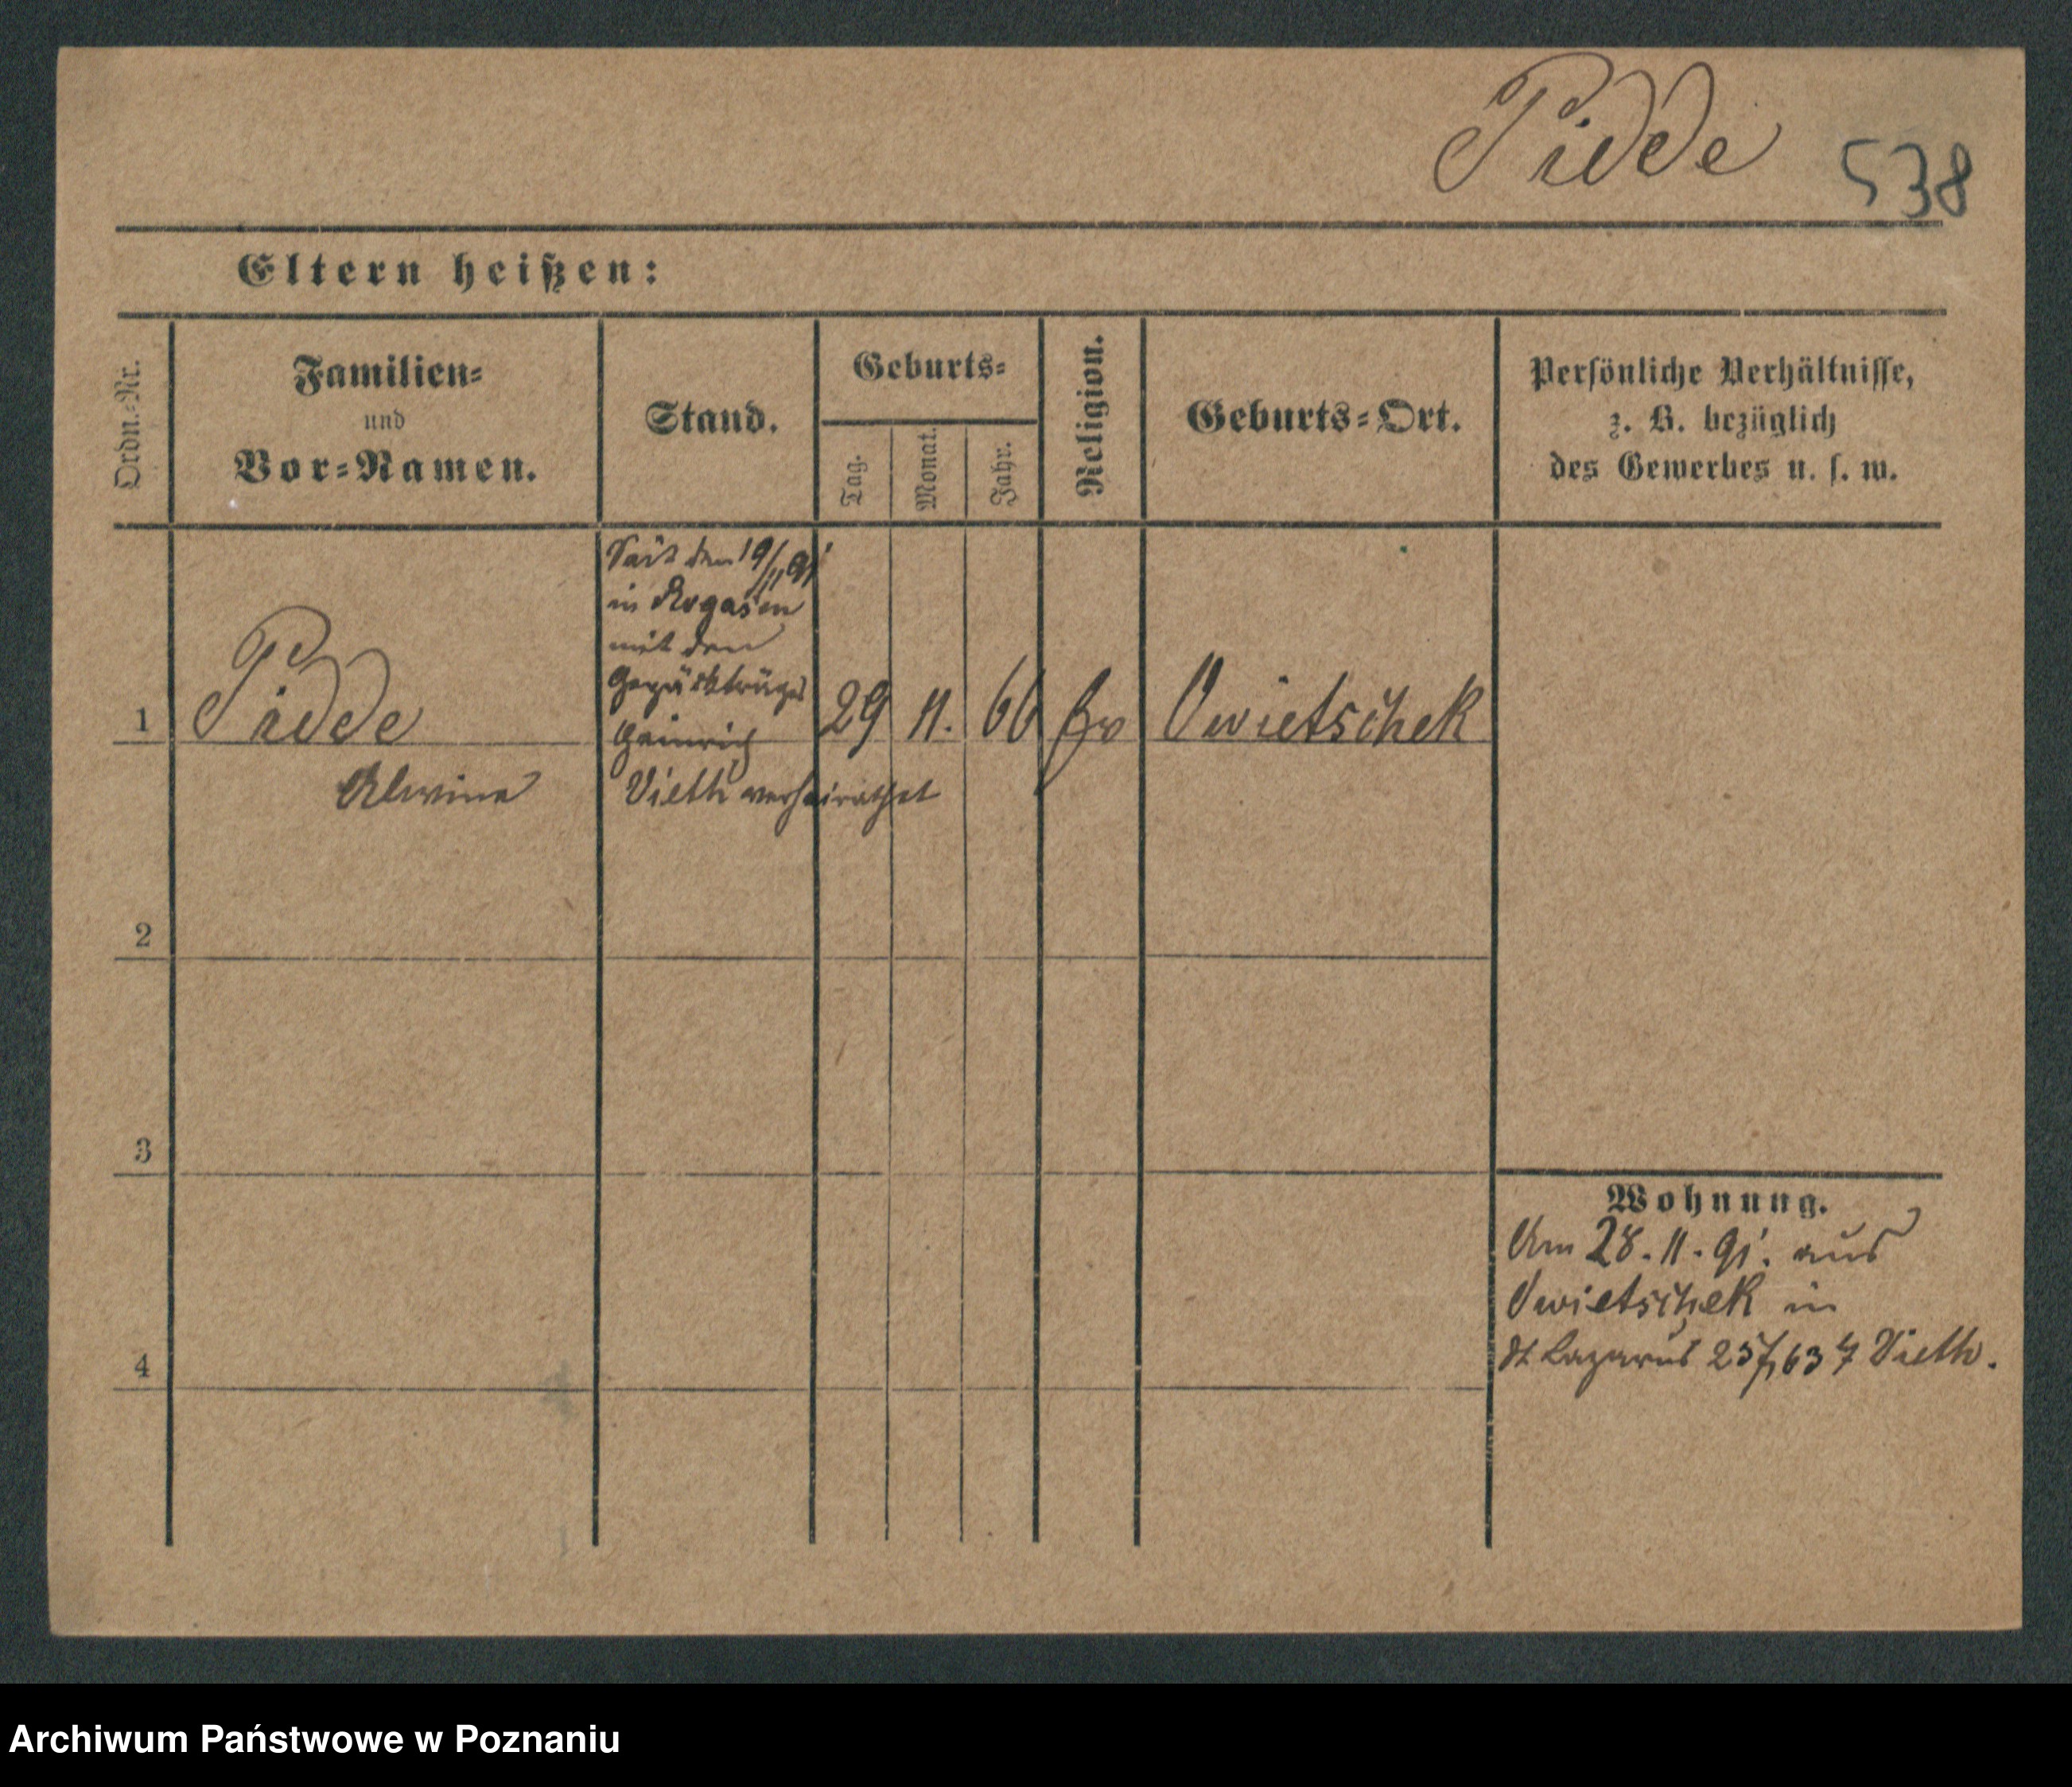 Pidde 538
Eltern heißen:
Ordn.-Nr.
Familien-
und
Vor-Namen.
Stand.
Geburts-
Tag.
Monat.
Jahr.
Religion.
Geburts-Ort.
Persönliche Verhältnisse,
z. B. bezüglich
des Gewerbes u. s. w.
Seit den 19/11 91
in Rogasen
mit den
Gepäckträger
Heinrich
Vieth verheirathet
1 Pidde 29 11. 66 Ev Owietschek
Alwine
2
3
4
Wohnung.
Am 28. 11. 91. aus
Owietschek in
St Lazarus 257, 63 Vieth.
Archiwum Państwowe w Poznaniu